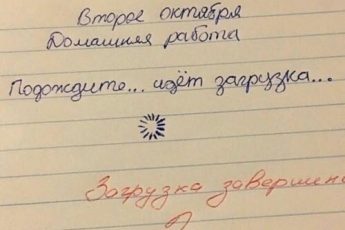 Второе октября
Домашняя работа
Подождите... идёт загрузка...
Загрузка завершен